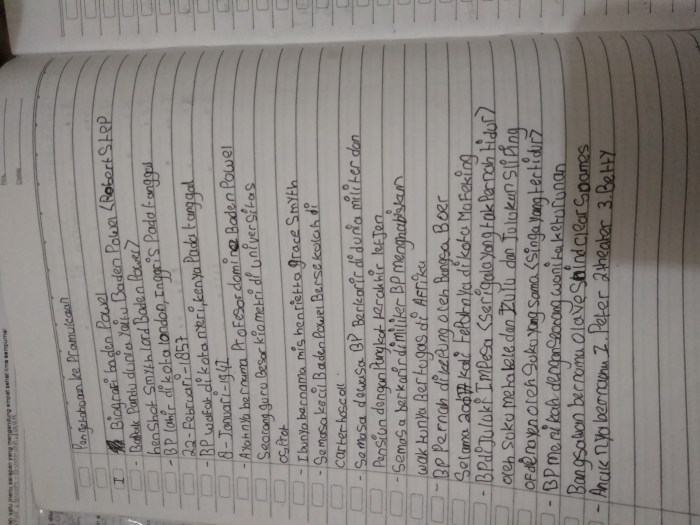 Pengetahuan ke Pramukaan
I Biografi baden Powel
- Bapak Pandu dunia yaitu Baden Powel (Robert Step
henshot Smyth lord Baden Powel)
- BP lahir di kota london, Inggris Pada tanggal
22-Februari-1857
- BP wafat di kota nyeri, kenya Pada tanggal
8-Januari-1941
- Ayahnya bernama Profesor domine Baden Powel
Seorang guru besar kiometri di universitas
osprot
- Ibunya bernama mis henrietta grace Smyth
- Semasa kecil Baden Powel Bersekolah di
carterhuse coll
- Semasa dewasa BP Berkarir di dunia militer dan
Pensiun dengan Pangkat terakhir letjen
- Semasa berkarir di militer BP menghabiskan
waktunya Bertugas di Afrika
- BP Pernah di kepung oleh Bangsa Boer
Selama 217 hari tepatnya di kota Mafeking
- BP di Juluki Impesa (Serigala yang tak Pernah tidur)
oleh suku metabele dan Zulu dan Julukun sliping
of de rayen oleh suku yang sama (singa yang tertidur)
- BP menikah dengan seorang wanita keturunan
Bangsawan bernama olave St clear Soames
- Anaknya bernama 1. Peter 2 theater 3. Betty